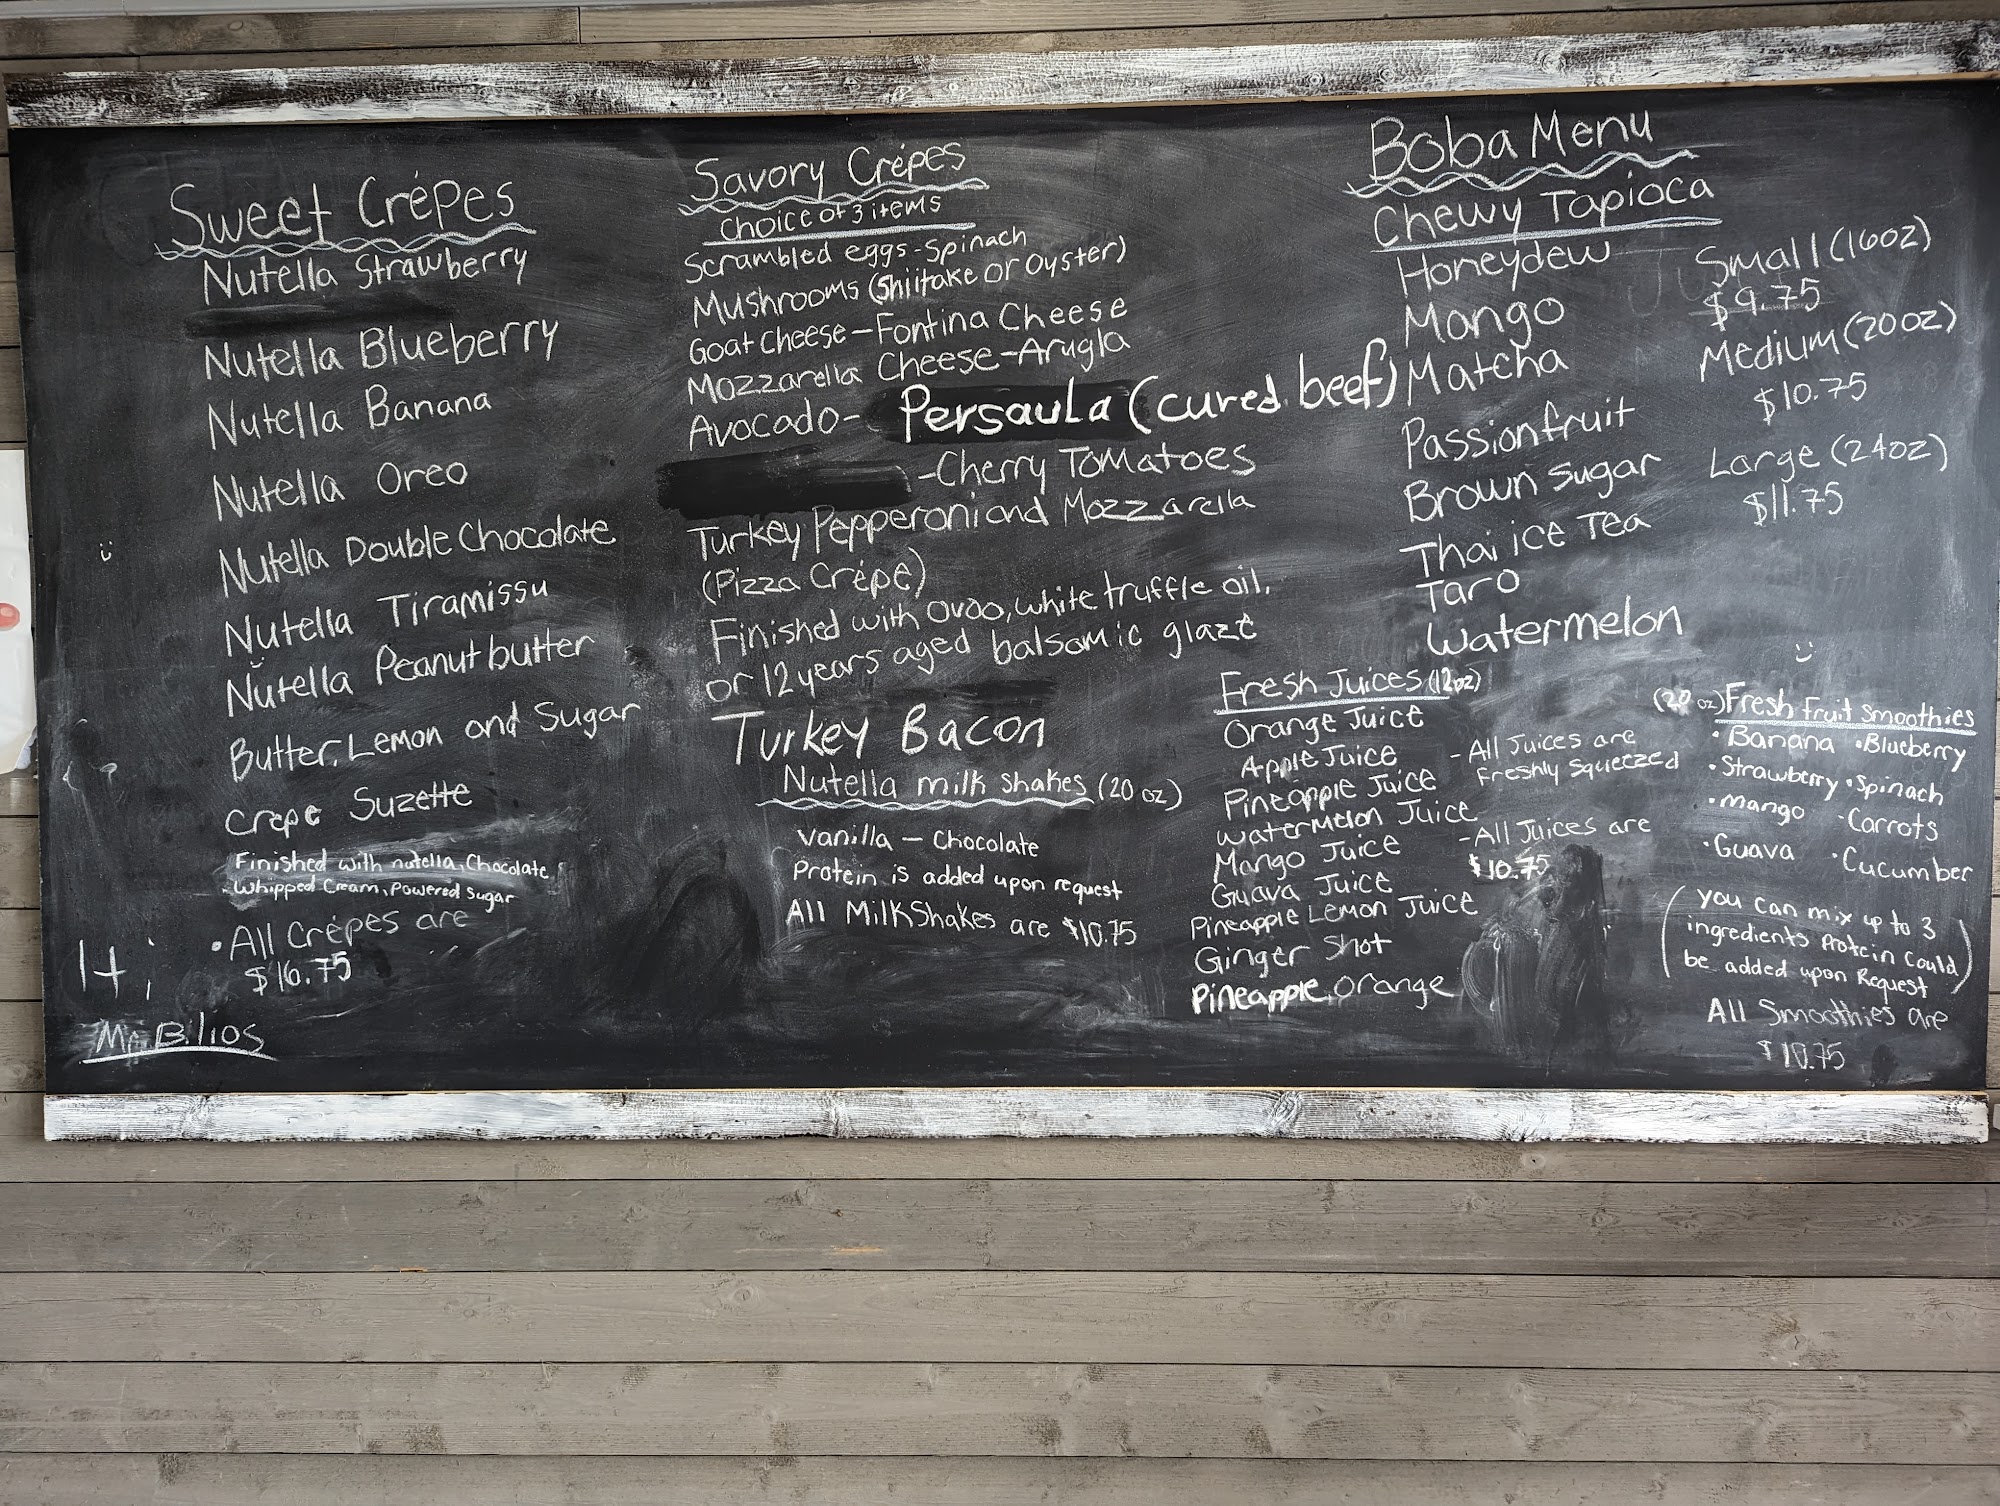 Sweet Crêpes
Nutella Strawberry
Nutella Blueberry
Nutella Banana
Nutella Oreo
Nutella Double Chocolate
Nutella Tiramissu
Nutella Peanut butter
Butter, Lemon and Sugar
Crepe Suzette
Finished with nutella, Chocolate
Whipped Cream, Powered Sugar
• All Crêpes are
$16.75
Hi
Savory Crépes
Choice of 3 items
Scrambled eggs - Spinach
Mushrooms (Shiitake or Oyster)
Goat Cheese - Fontina Cheese
Mozzarella Cheese - Arugla
Avocado - Persaula (cured beef)
- Cherry Tomatoes
Turkey Pepperoni and Mozzarella
(Pizza Crépe)
Finished with ovoo, white truffle oil,
or 12 years aged balsamic glaze
Turkey Bacon
Nutella milk shakes (20 oz)
Vanilla - Chocolate
Protein is added upon request
All MilkShakes are $10.75
Boba Menu
Chewy Tapioca
Honeydew
Mango
Matcha
Passionfruit
Brown Sugar
Thai ice Tea
Taro
Watermelon
Small (16oz)
$9.75
Medium (20oz)
$10.75
Large (24oz)
$11.75
Fresh Juices (12oz)
Orange Juice
Apple Juice
Pineapple Juice
Watermelon Juice
Mango Juice
Guava Juice
Pineapple Lemon Juice
Ginger Shot
Pineapple, Orange
- All Juices are
Freshly Squeezed
- All Juices are
$10.75
(20 oz) Fresh Fruit Smoothies
• Banana • Blueberry
• Strawberry • Spinach
• Mango • Carrots
• Guava • Cucumber
(you can mix up to 3
ingredients Protein could
be added upon Request)
All Smoothies are
$10.75